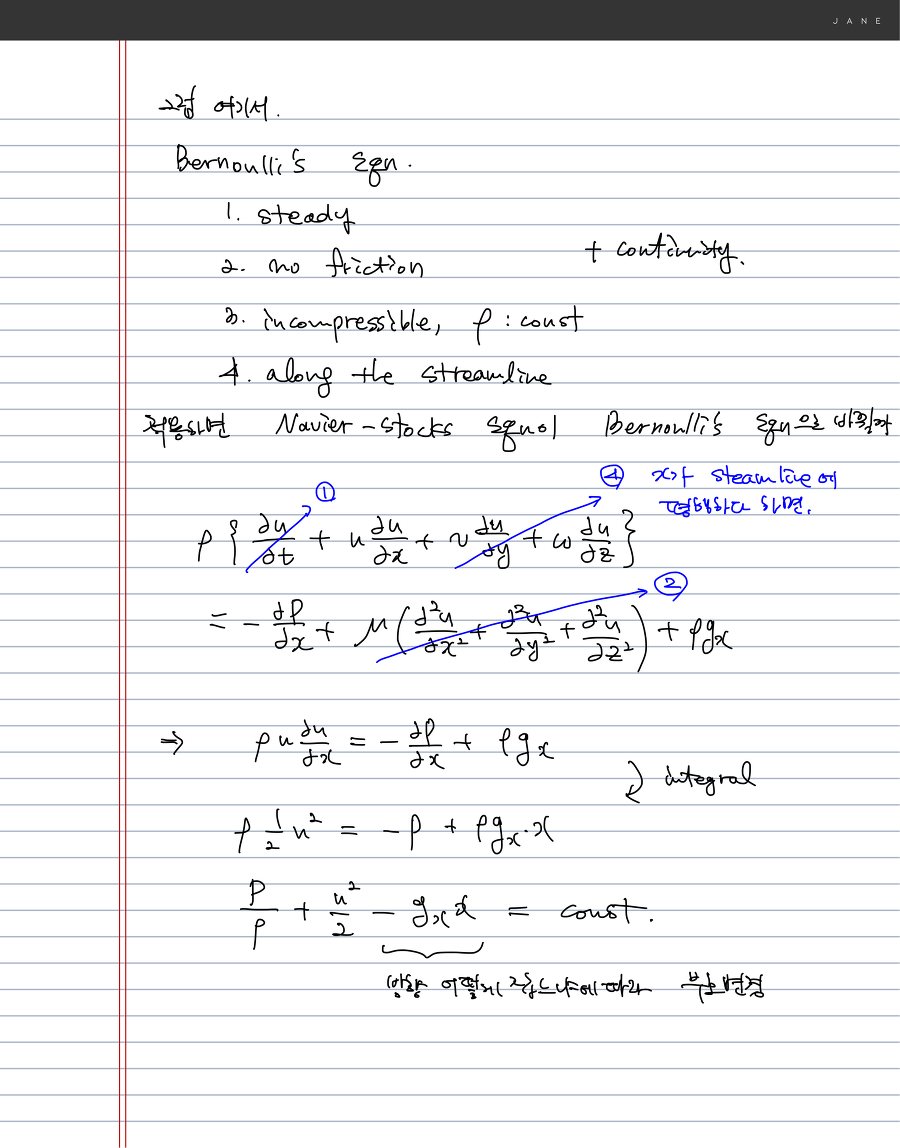 JANE
그럼 여기서.
Bernoulli's Eqn.
1. steady
2. no friction
+ continuity.
3. incompressible, ρ : const
4. along the streamline
적용하면 Navier-stocks Eqn이 Bernoulli's Eqn으로 바뀔까
① ④ x가 steamline에
평행하다 하면.
ρ { ∂u/∂t + u ∂u/∂x + v ∂u/∂y + w ∂u/∂z }
②
= - ∂P/∂x + μ ( ∂²u/∂x² + ∂²u/∂y² + ∂²u/∂z² ) + ρgx
⇒ ρ u ∂u/∂x = - ∂P/∂x + ρgx
integral
ρ 1/2 u² = - P + ρgx·x
P/ρ + u²/2 - gx x = const.
방향 어떻게 잡느냐에 따라 부호변경